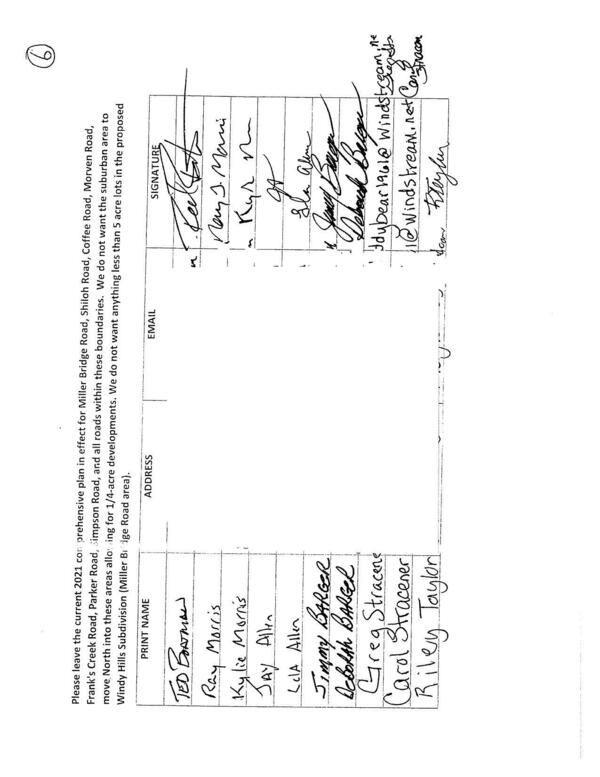 6
Please leave the current 2021 comprehensive plan in effect for Miller Bridge Road, Shiloh Road, Coffee Road, Morven Road,
Frank's Creek Road, Parker Road, Simpson Road, and all roads within these boundaries. We do not want the suburban area to
move North into these areas allowing for 1/4-acre developments. We do not want anything less than 5 acre lots in the proposed
Windy Hills Subdivision (Miller Bridge Road area).
PRINT NAME ADDRESS EMAIL SIGNATURE
TED BOATMAN
Ray Morris Ray J Morris
Kylie Morris
JAY Allen
LelA Allen
Jimmy BARGER Jimmy Barger
Deborah BARGER Deborah Barger
Greg Stracener ddybear1961@windstream.ne
Carol Stracener l@windstream.net Carol Stracen
Riley Taylor